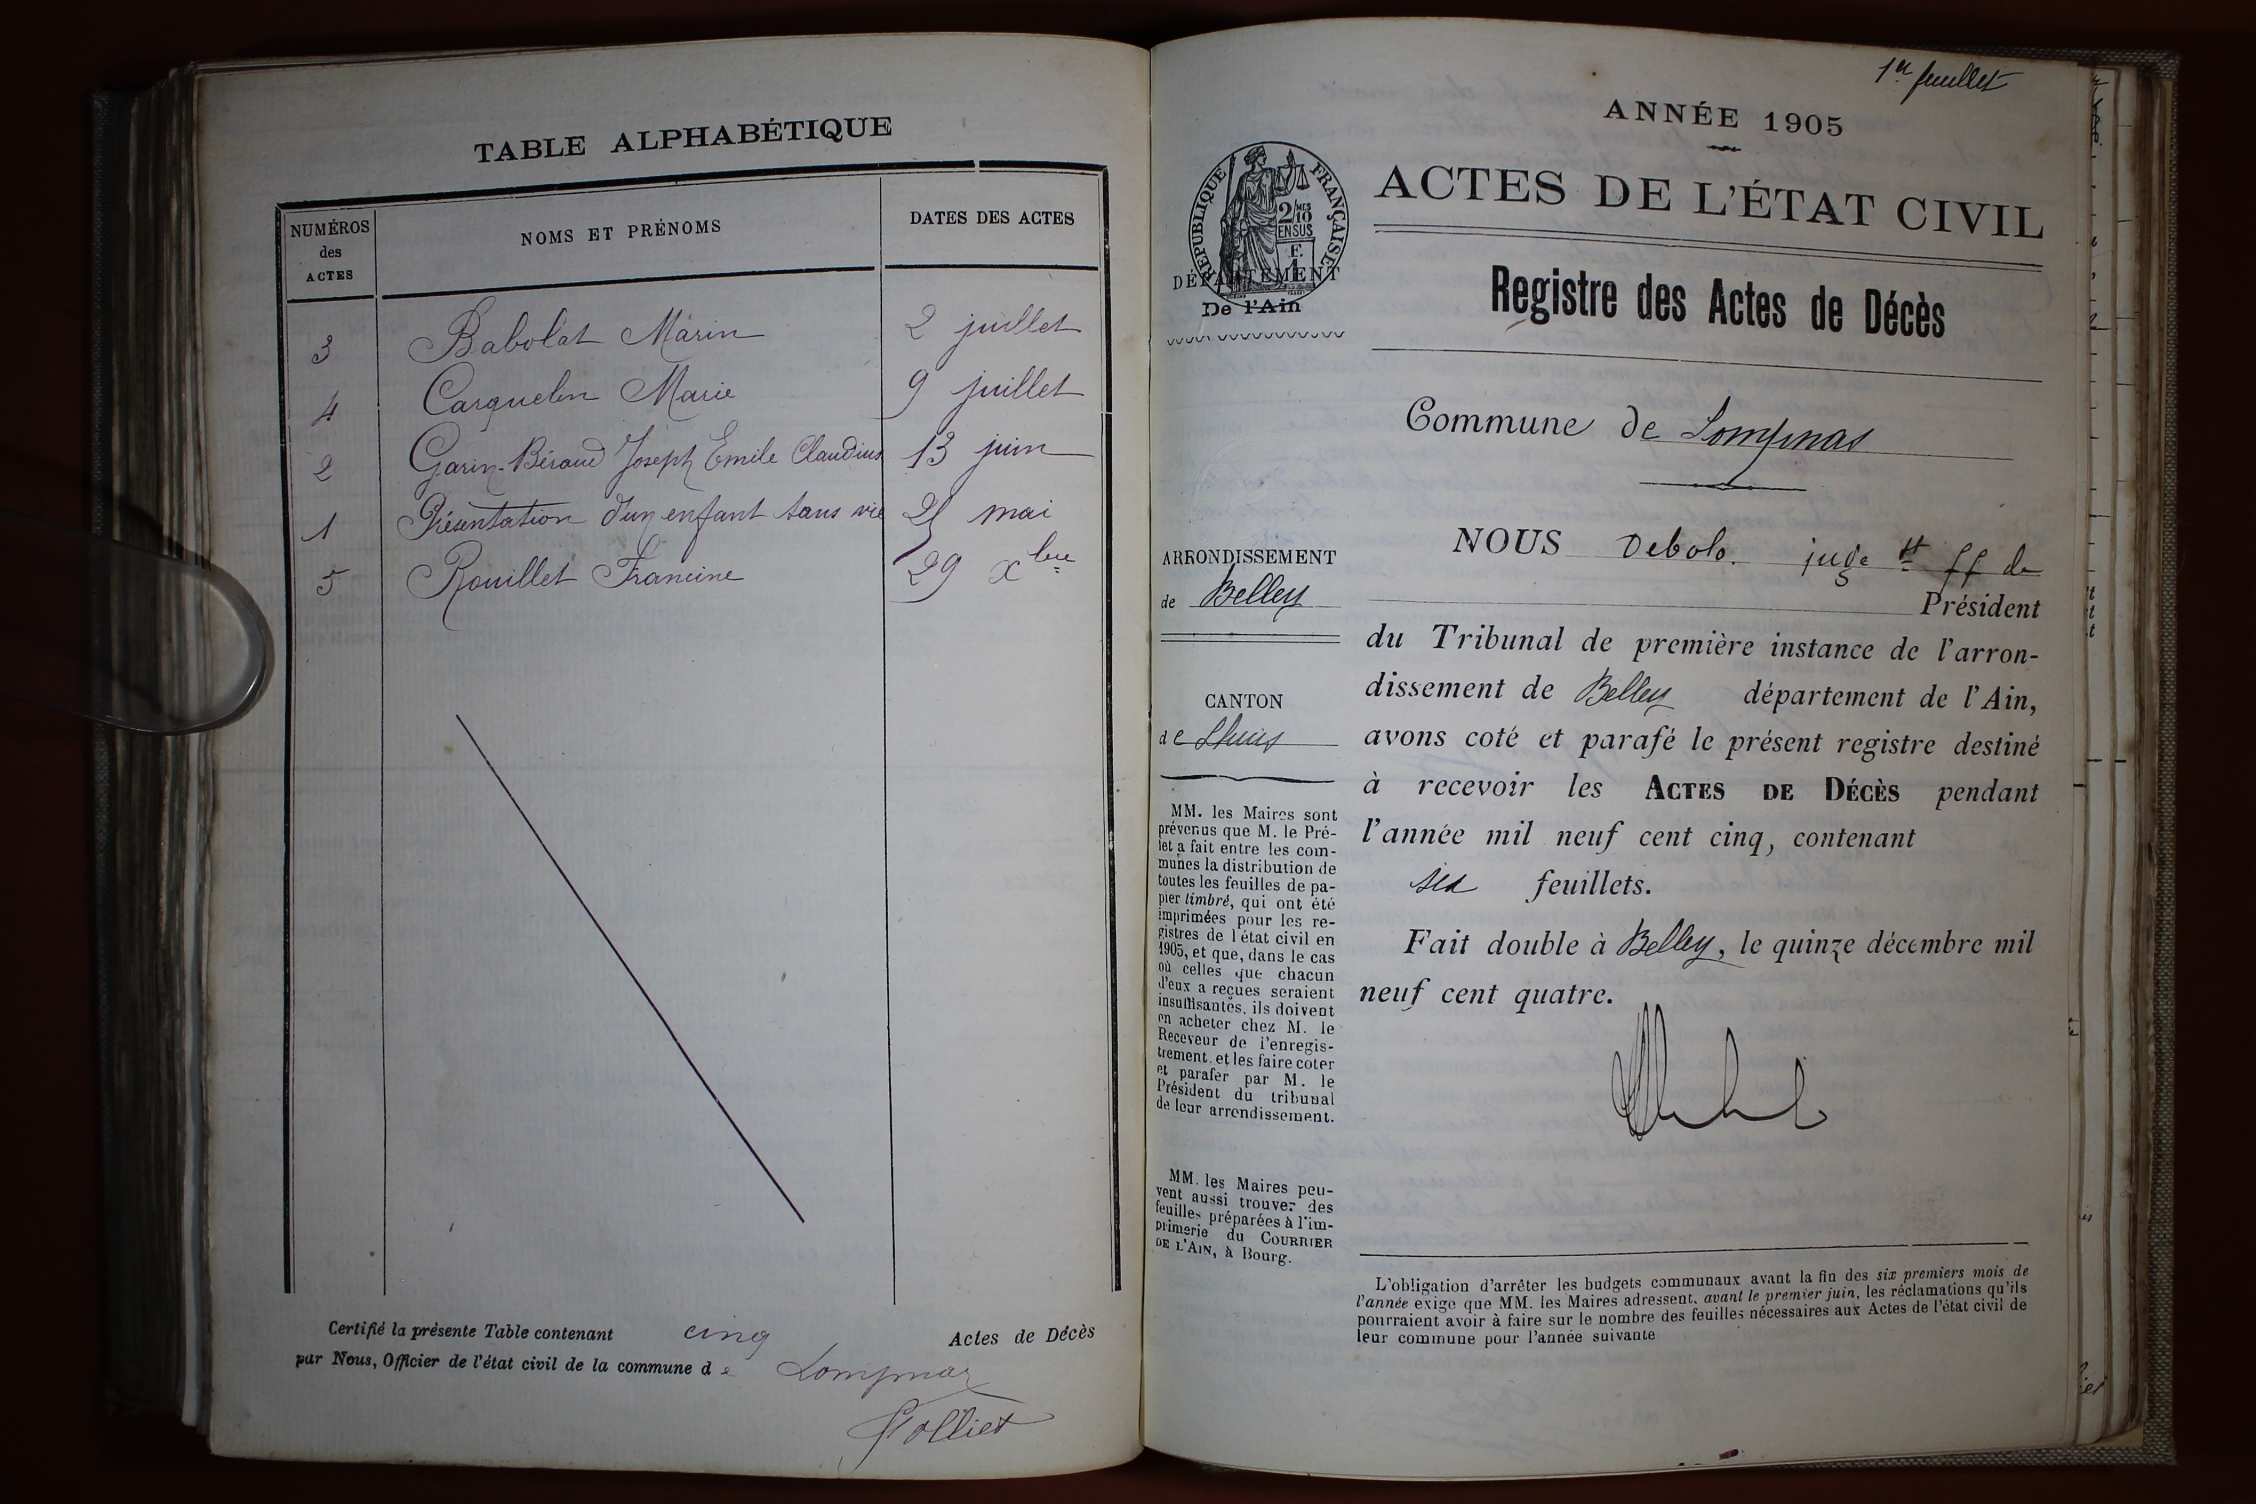 TABLE ALPHABÉTIQUE
NUMÉROS des ACTES NOMS ET PRÉNOMS DATES DES ACTES
3 Babolat Marin 2 juillet
4 Carquelin Marie 9 juillet
2 Garin-Béraud Joseph Emile Claudius 13 juin
1 Présentation d'un enfant sans vie 21 mai
5 Rouillet Francine 29 xbre
Certifié la présente Table contenant cinq Actes de Décès
par Nous, Officier de l'état civil de la commune de Lompnaz
Golliet
1er feuillet
ANNÉE 1905
ACTES DE L'ÉTAT CIVIL
RÉPUBLIQUE FRANÇAISE
2/10 MES
EN SUS
DÉPARTEMENT
De l'Ain
Registre des Actes de Décès
Commune de Lompnas
ARRONDISSEMENT
de Belley
CANTON
de Lhuis
MM. les Maires sont
prévenus que M. le Pré-
fet a fait entre les com-
munes la distribution de
toutes les feuilles de pa-
pier timbré, qui ont été
imprimées pour les re-
gistres de l'état civil en
1905, et que, dans le cas
où celles que chacun
d'eux a reçues seraient
insuffisantes, ils doivent
en acheter chez M. le
Receveur de l'enregis-
trement et les faire coter
et parafer par M. le
Président du tribunal
de leur arrondissement.
MM. les Maires peu-
vent aussi trouver des
feuilles préparées à l'im-
primerie du COURRIER
DE L'AIN, à Bourg.
NOUS Debolo. juge st ff de
Président
du Tribunal de première instance de l'arron-
dissement de Belley département de l'Ain,
avons coté et parafé le présent registre destiné
à recevoir les ACTES DE DÉCÈS pendant
l'année mil neuf cent cinq, contenant
six feuillets.
Fait double à Belley, le quinze décembre mil
neuf cent quatre.
L'obligation d'arrêter les budgets communaux avant la fin des six premiers mois de
l'année exige que MM. les Maires adressent, avant le premier juin, les réclamations qu'ils
pourraient avoir à faire sur le nombre des feuilles nécessaires aux Actes de l'état civil de
leur commune pour l'année suivante